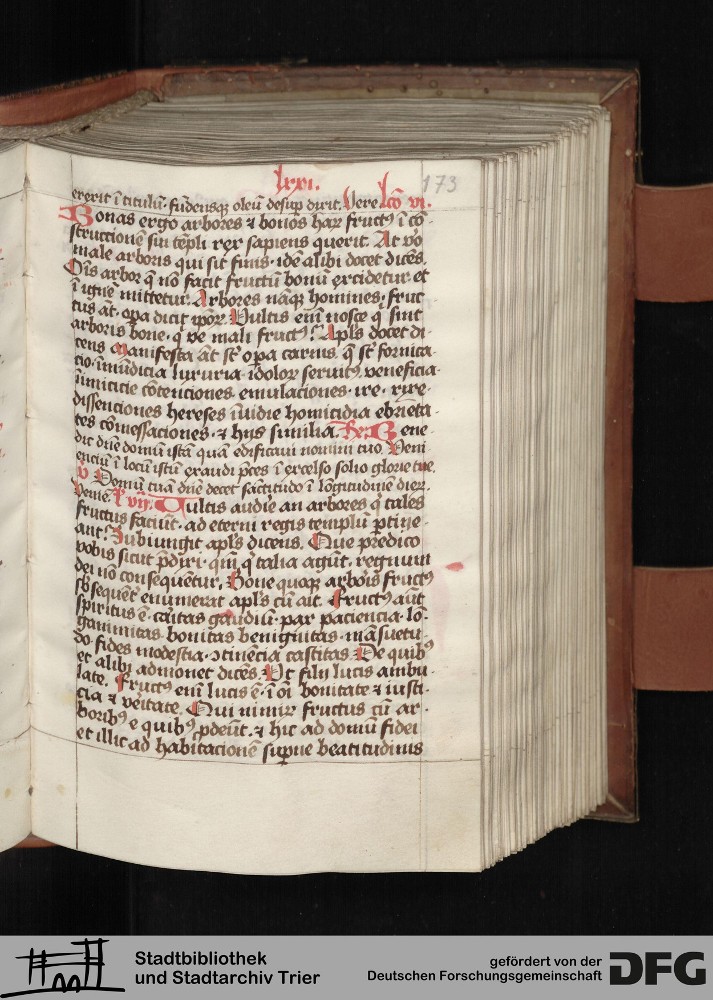 lxxi.
173
erexit ī titulū · fūdensq; oleū desup dixit. Vere Lcō vi.
Bonas ergo arbores ⁊ bonos harū fructꝰ ī cō-
structione sui tēpli rex sapiens querit. At vo
male arboris qui sit finis · idē alibi docet dicēs.
Oīs arbor q nō facit fructū bonū excidetur et
ī ignē mittetur. Arbores nāq; homines, fruc-
tus āt · opa dicit ipoꝝ. Vultis enī nosce q̄ sint
arboris bone · q̄ ve mali fructꝰ? Apls docet di-
cens Manifesta āt st̄ opa carnis, q̄ st̄ fornica-
cio · īmūdicia luxuria · idoloꝝ seruitꝰ, veneficia
īimicicie cōtenciones · emulaciones · ire · rixe ·
dissenciones hereses īuidie homicidia ebrieta-
tes cōmessaciones · ⁊ hijs similia. Re. Bene-
dic dn̄e domū istā quā edificaui nomini tuo. Veni-
enciū ī locū istū exaudi p̄ces ī excelso solio glorie tue.
v Domū tuā dn̄e decet sāctitudo ī lōgitudinē dieꝝ.
Venie. L. vii. Vultis audire an arbores q̄ tales
fructus faciūt · ad eterni regis templū p̄tine-
ant? Subiungit apls dicens. Que predico
vobis sicut p̄dixi · qm̄ q̄ talia agūt, regnum
dei nō consequētur, Bone quoq; arboris fructꝰ
sb̄sequēt̄ enumerat apls cū ait. Fructꝰ aūt
spiritus ē · caritas gaudiū · pax paciencia · lō-
ganimitas · bonitas benignitas · māsuetu-
do · fides modestia · ↄtinēcia castitas. De quibꝰ
et alibi admonet dicēs. Ut filij lucis ambu-
late. Fructꝰ enī lucis ē · ī oī bonitate ⁊ iusti-
cia ⁊ veritate. Qui nimir̄ fructus cū ar-
boribꝰ e quibꝰ p̄deūt · ⁊ hic ad domū fidei
et illic ad habitacionē supne beatitudinis
Stadtbibliothek
und Stadtarchiv Trier
gefördert von der
Deutschen Forschungsgemeinschaft
DFG